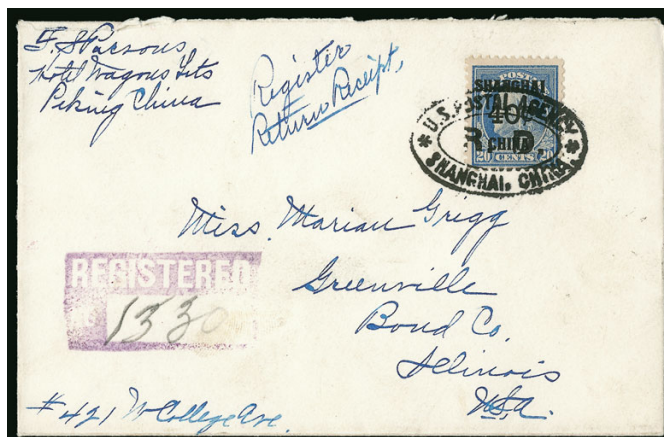 F. S. Parsons
Hotel Wagons Lits
Peking China
Register
Return Receipt,
POSTAGE
SHANGHAI
40¢
CHINA
20 CENTS 20
* U.S. POSTAL AGENCY *
R. D.
SHANGHAI, CHINA
Miss. Marian Grigg
Greenville
Bond Co.
Illinois
U.S.A.
REGISTERED
No 1330
#421 W College Ave.